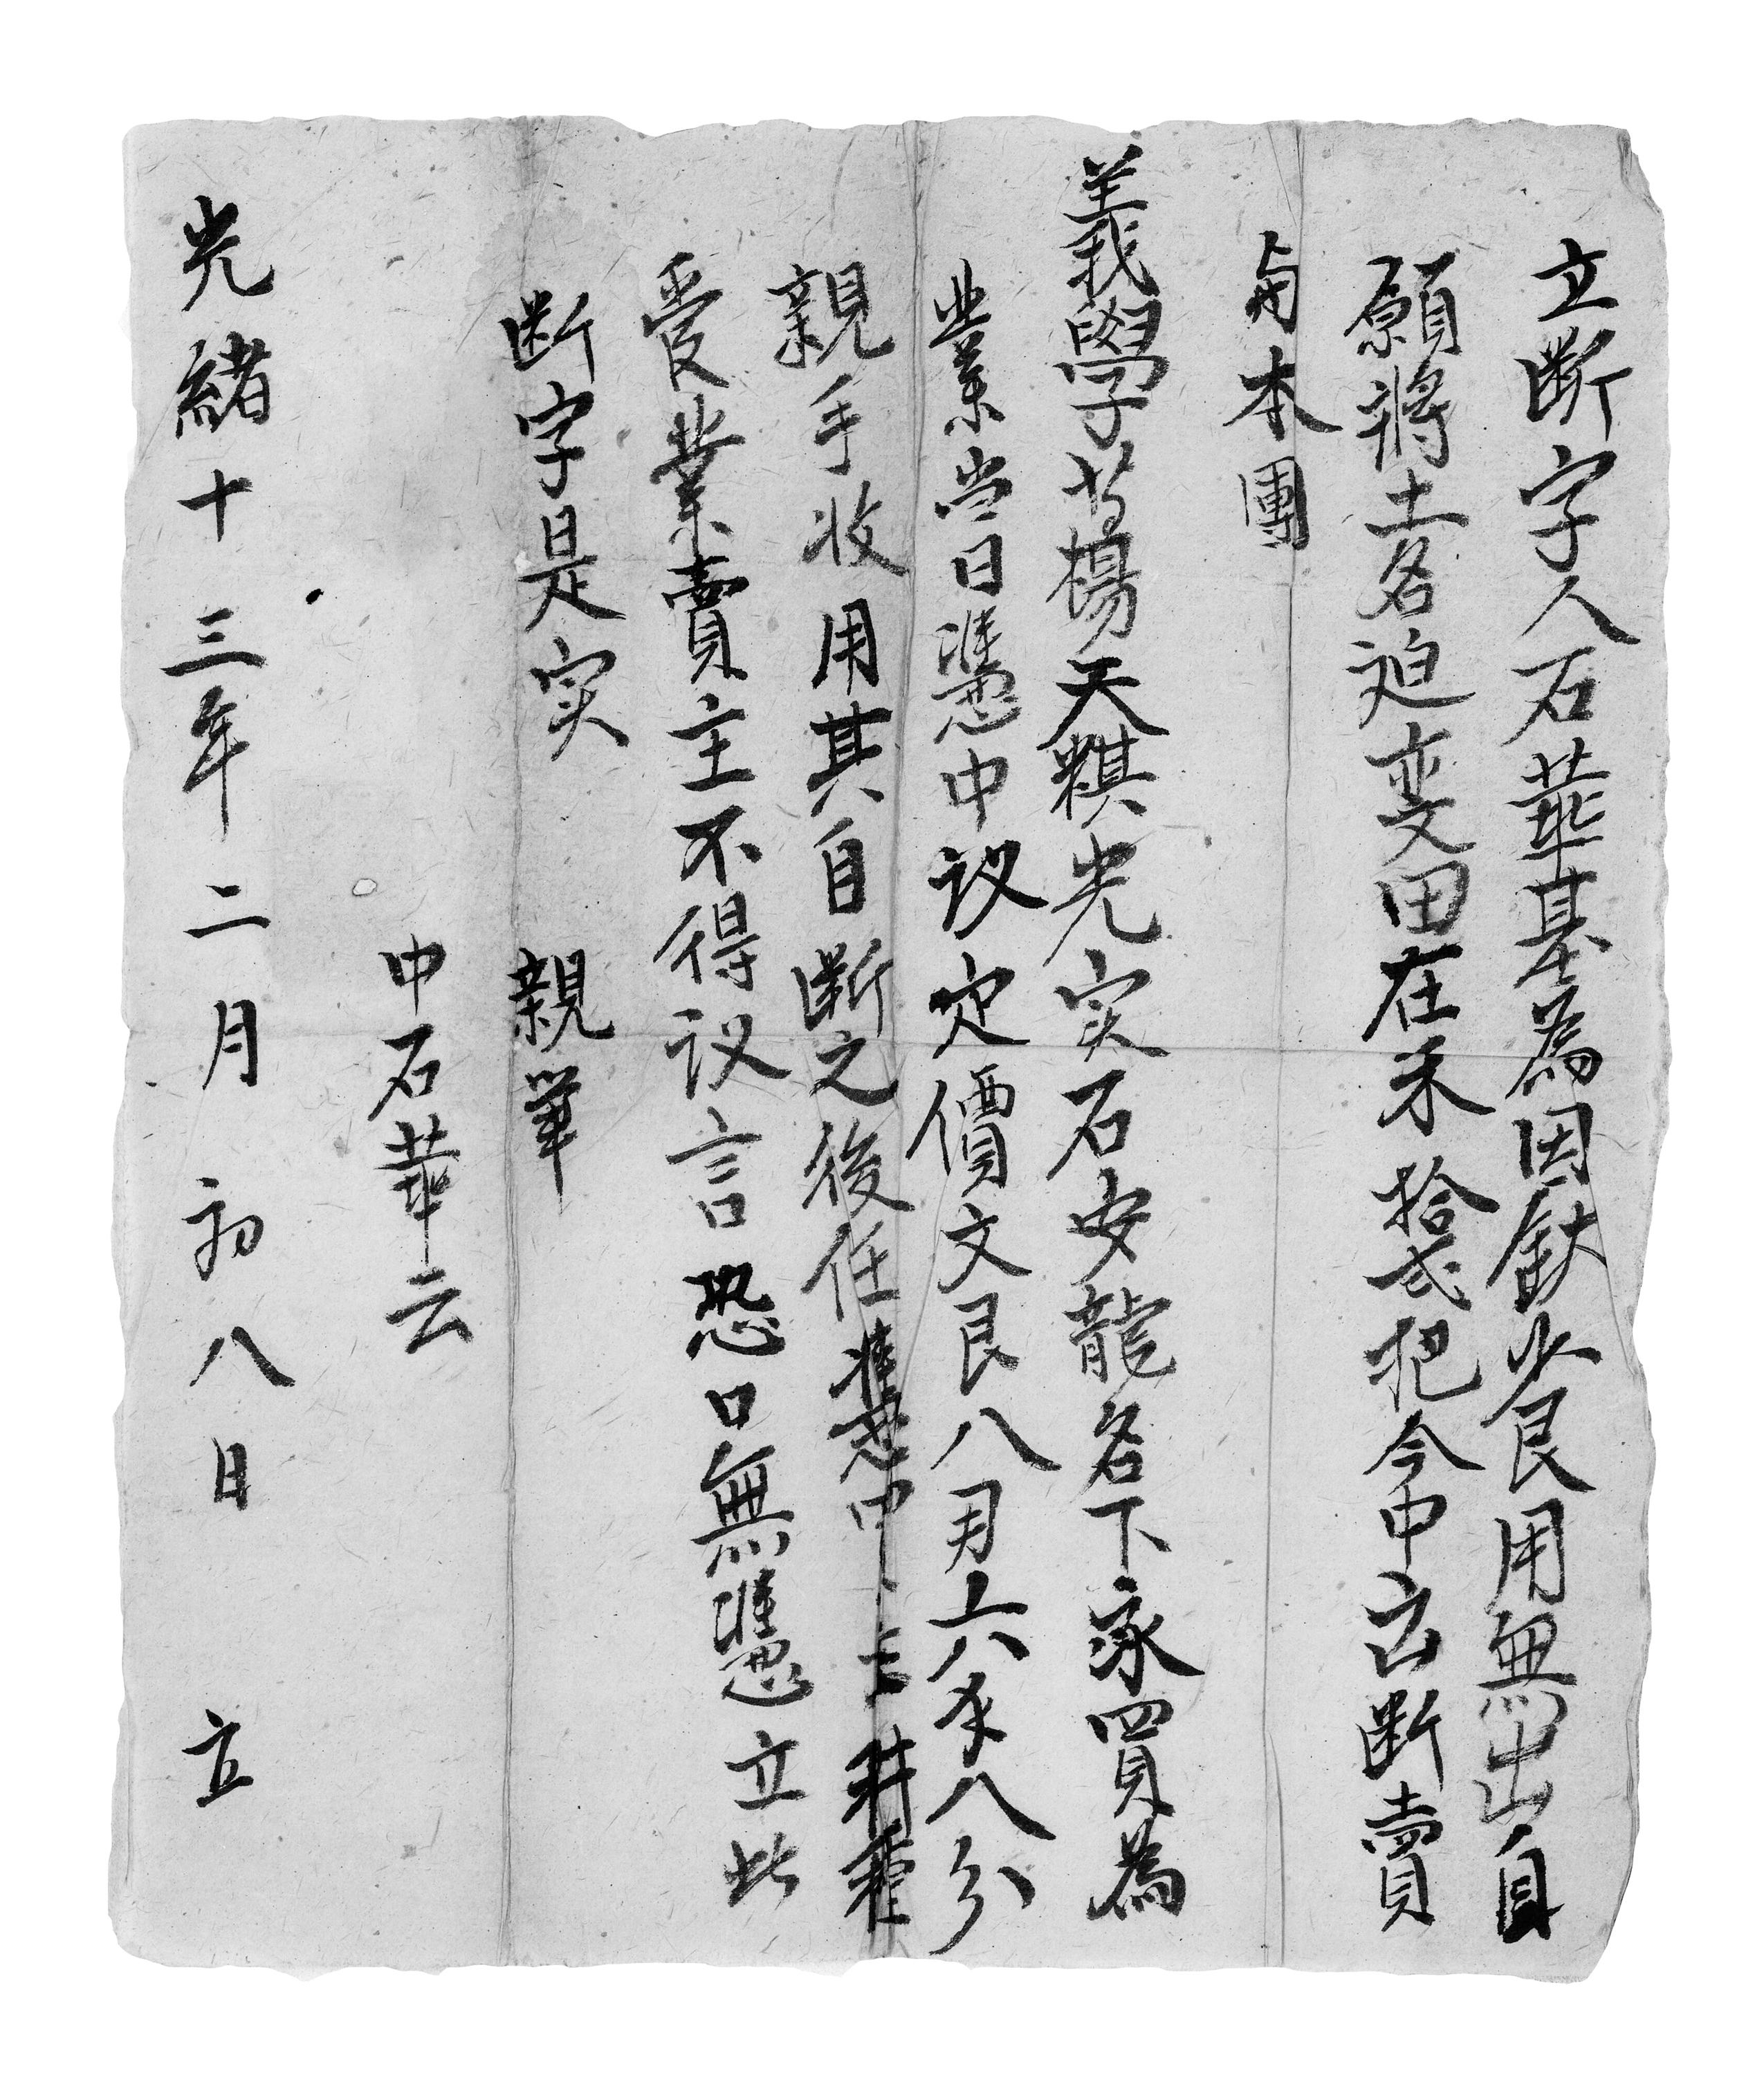 立断字人石華基為因缺少食用無出自
願將土名迫变田在禾拾弍把今中出断賣
與本團
義學首楊天粸光实石安龍名下承買為
業当日憑中议定價文艮八月六錢八分
親手收用其自断之後任憑中主耕種
受業賣主不得议言恐口無憑立此
断字是实 親筆
中石華云
光緒十三年二月初八日 立